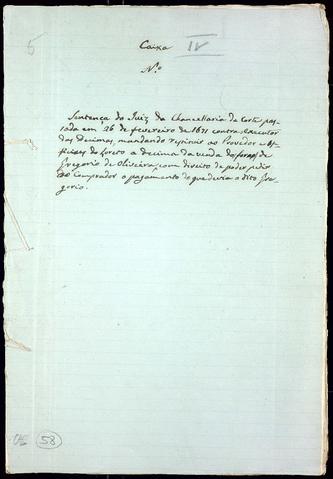 5
Caixa IV
N.º
Sentença do Juiz da Chancellaria da Corte pas-
sada em 26 de fevereiro de 1671 contra executor
das decimas, mandando restituir ao Provedor e Of-
ficiaes do Loreto a decima da venda do foro de
Gregorio de Oliveira, com direito de poder pedir
ao Comprador o pagamento do que devia o dito Gre-
gorio.
58